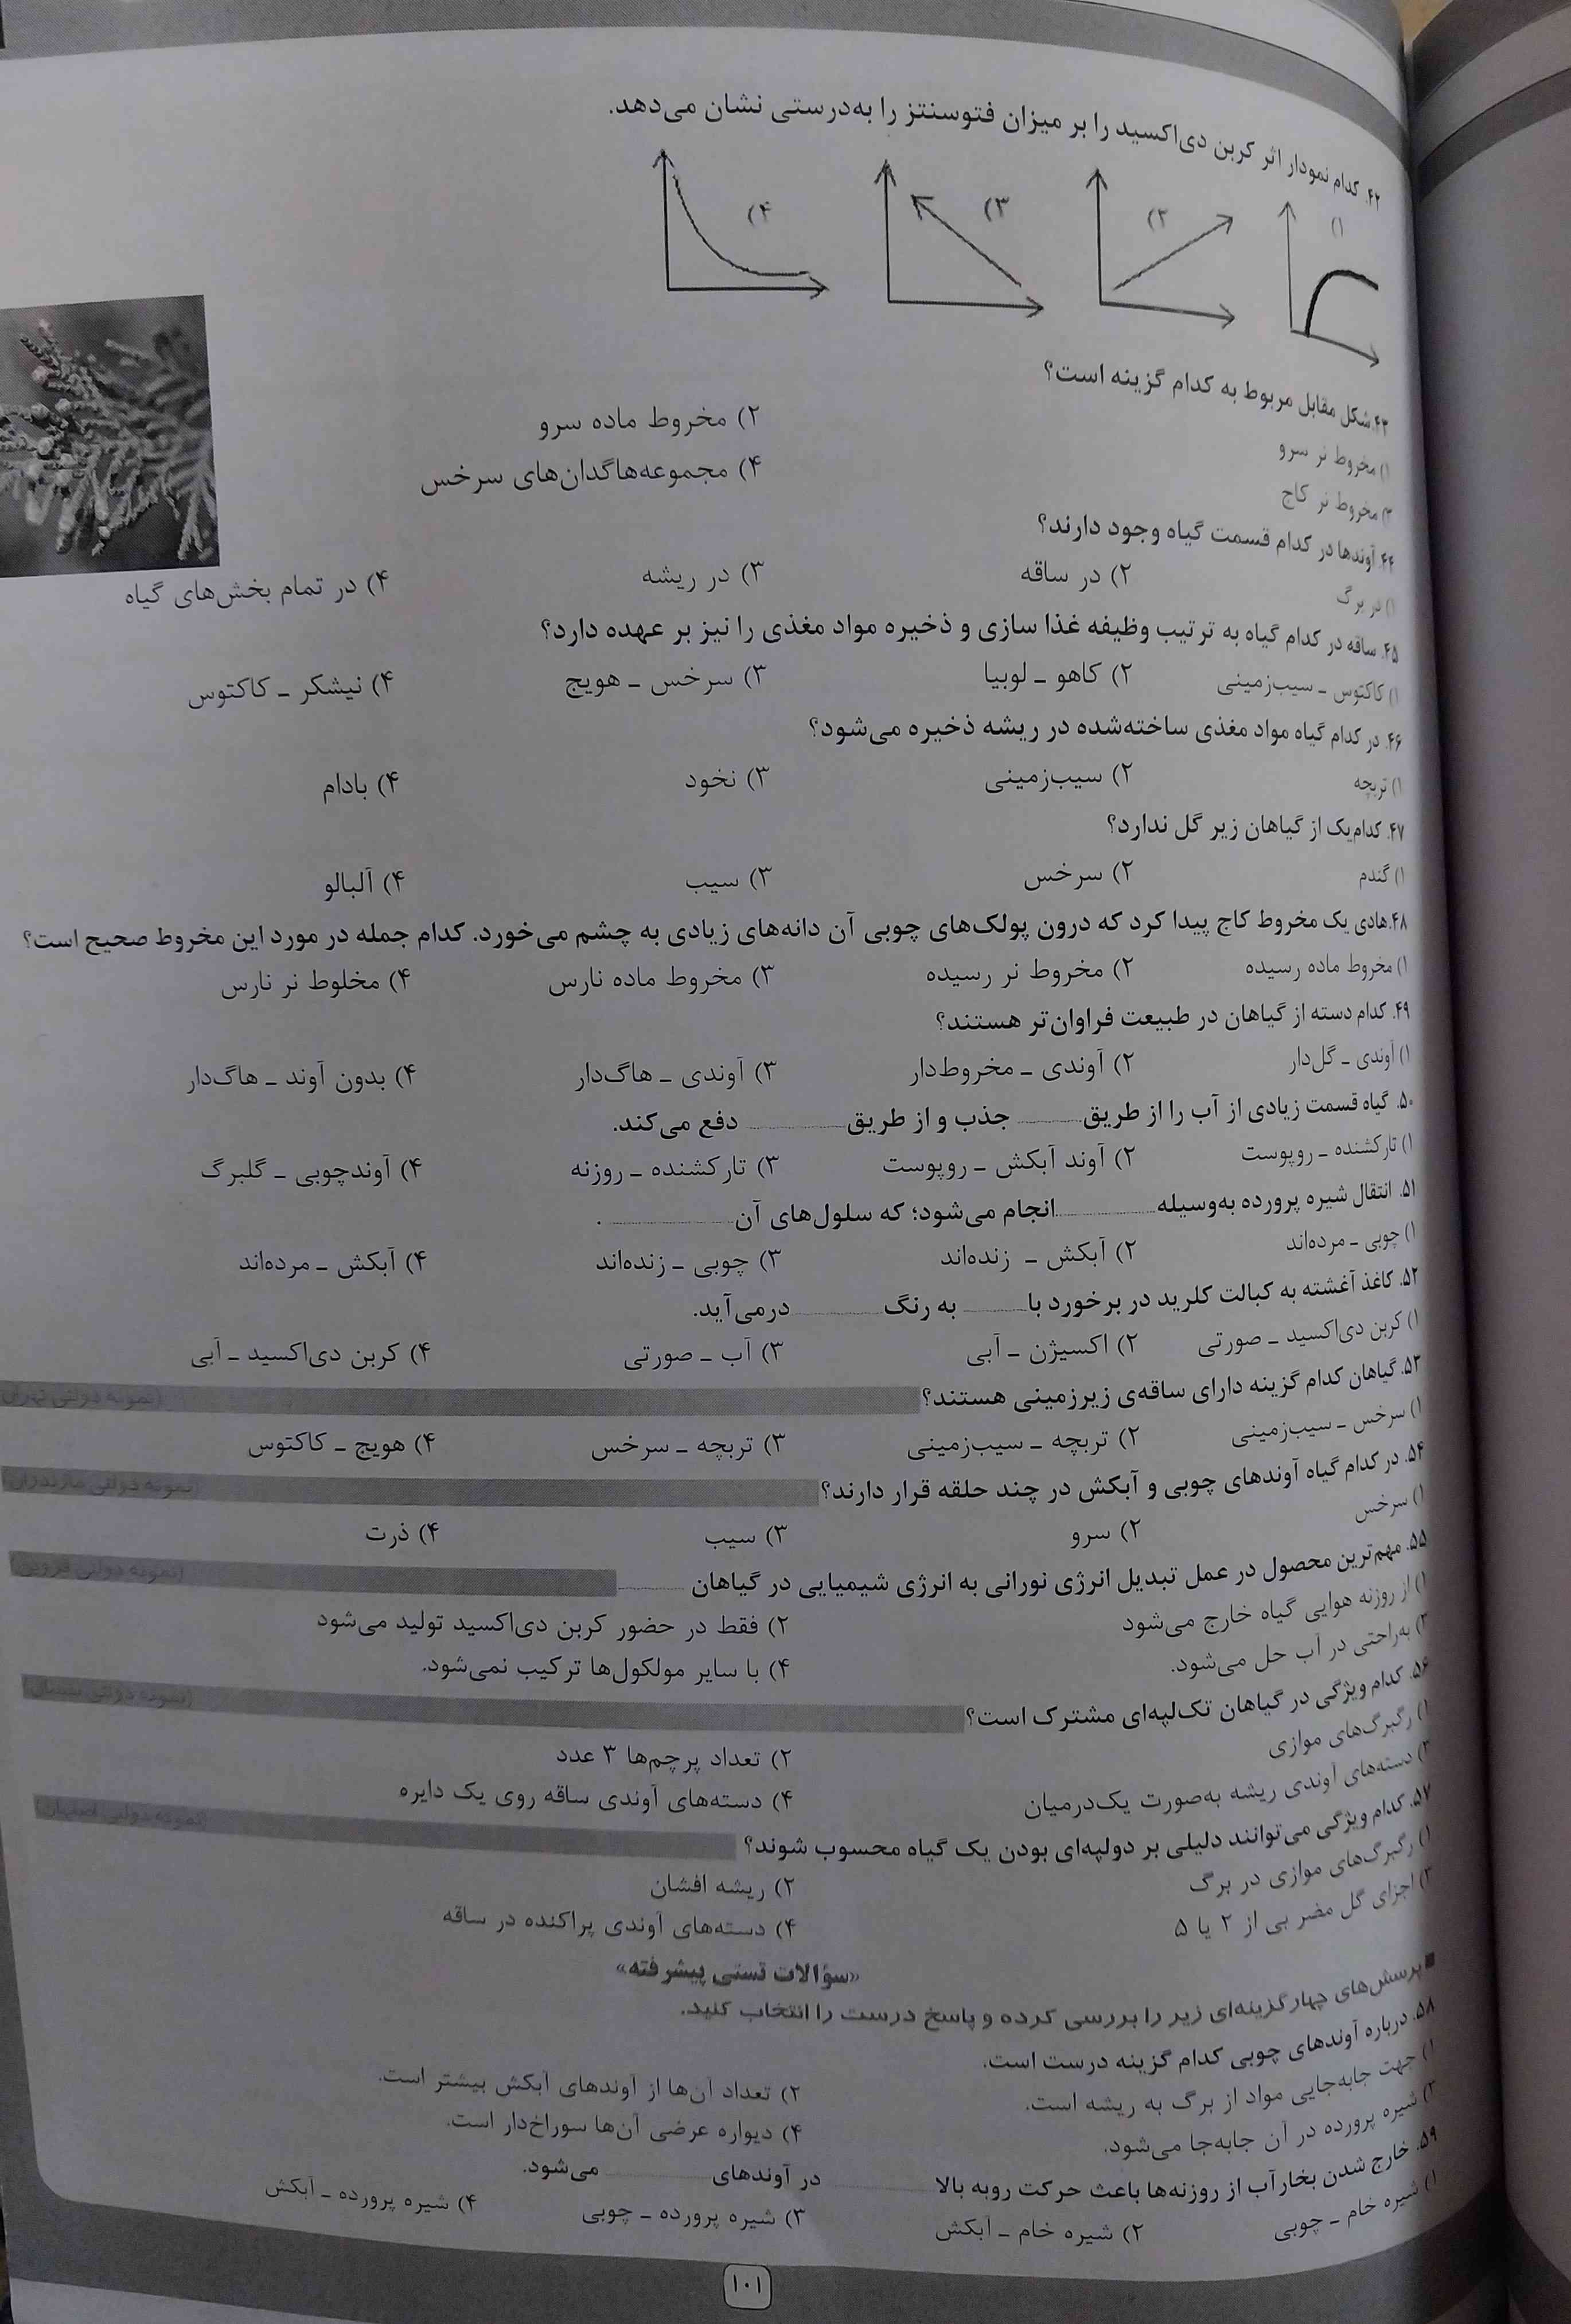 ۴۲. کدام نمودار اثر کربن دی‌اکسید را بر میزان فتوسنتز را به‌درستی نشان می‌دهد.
۱) ۲) ۳) ۴)
۴۳. شکل مقابل مربوط به کدام گزینه است؟
۱) مخروط نر سرو ۲) مخروط ماده سرو
۳) مخروط نر کاج ۴) مجموعه‌هاگدان‌های سرخس
۴۴. آوندها در کدام قسمت گیاه وجود دارند؟
۱) در برگ ۲) در ساقه ۳) در ریشه ۴) در تمام بخش‌های گیاه
۴۵. ساقه در کدام گیاه به ترتیب وظیفه غذا سازی و ذخیره مواد مغذی را نیز بر عهده دارد؟
۱) کاکتوس ـ سیب‌زمینی ۲) کاهو ـ لوبیا ۳) سرخس ـ هویج ۴) نیشکر ـ کاکتوس
۴۶. در کدام گیاه مواد مغذی ساخته‌شده در ریشه ذخیره می‌شود؟
۱) تربچه ۲) سیب‌زمینی ۳) نخود ۴) بادام
۴۷. کدام‌یک از گیاهان زیر گل ندارد؟
۱) گندم ۲) سرخس ۳) سیب ۴) آلبالو
۴۸. هادی یک مخروط کاج پیدا کرد که درون پولک‌های چوبی آن دانه‌های زیادی به چشم می‌خورد. کدام جمله در مورد این مخروط صحیح است؟
۱) مخروط ماده رسیده ۲) مخروط نر رسیده ۳) مخروط ماده نارس ۴) مخلوط نر نارس
۴۹. کدام دسته از گیاهان در طبیعت فراوان‌تر هستند؟
۱) آوندی ـ گل‌دار ۲) آوندی ـ مخروط‌دار ۳) آوندی ـ هاگ‌دار ۴) بدون آوند ـ هاگ‌دار
۵۰. گیاه قسمت زیادی از آب را از طریق ........... جذب و از طریق ........... دفع می‌کند.
۱) تارکشنده ـ روپوست ۲) آوند آبکش ـ روپوست ۳) تارکشنده ـ روزنه ۴) آوندچوبی ـ گلبرگ
۵۱. انتقال شیره پرورده به‌وسیله ........... انجام می‌شود؛ که سلول‌های آن ........... .
۱) چوبی ـ مرده‌اند ۲) آبکش ـ زنده‌اند ۳) چوبی ـ زنده‌اند ۴) آبکش ـ مرده‌اند
۵۲. کاغذ آغشته به کبالت کلرید در برخورد با ........... به رنگ ........... درمی‌آید.
۱) کربن دی‌اکسید ـ صورتی ۲) اکسیژن ـ آبی ۳) آب ـ صورتی ۴) کربن دی‌اکسید ـ آبی
۵۳. گیاهان کدام گزینه دارای ساقه‌ی زیرزمینی هستند؟ (نمونه دولتی تهران)
۱) سرخس ـ سیب‌زمینی ۲) تربچه ـ سیب‌زمینی ۳) تربچه ـ سرخس ۴) هویج ـ کاکتوس
۵۴. در کدام گیاه آوندهای چوبی و آبکش در چند حلقه قرار دارند؟ (نمونه دولتی مازندران)
۱) سرخس ۲) سرو ۳) سیب ۴) ذرت
۵۵. مهم‌ترین محصول در عمل تبدیل انرژی نورانی به انرژی شیمیایی در گیاهان ........... (نمونه دولتی قزوین)
۱) از روزنه هوایی گیاه خارج می‌شود ۲) فقط در حضور کربن دی‌اکسید تولید می‌شود
۳) به‌راحتی در آب حل می‌شود. ۴) با سایر مولکول‌ها ترکیب نمی‌شود.
۵۶. کدام ویژگی در گیاهان تک‌لپه‌ای مشترک است؟ (نمونه دولتی سمنان)
۱) رگبرگ‌های موازی ۲) تعداد پرچم‌ها ۳ عدد
۳) دسته‌های آوندی ریشه به‌صورت یک‌درمیان ۴) دسته‌های آوندی ساقه روی یک دایره
۵۷. کدام ویژگی می‌توانند دلیلی بر دولپه‌ای بودن یک گیاه محسوب شوند؟ (نمونه دولتی اصفهان)
۱) رگبرگ‌های موازی در برگ ۲) ریشه افشان
۳) اجزای گل مضر بی از ۲ یا ۵ ۴) دسته‌های آوندی پراکنده در ساقه
«سؤالات تستی پیشرفته»
■ پرسش‌های چهارگزینه‌ای زیر را بررسی کرده و پاسخ درست را انتخاب کنید.
۵۸. درباره آوندهای چوبی کدام گزینه درست است.
۱) جهت جابه‌جایی مواد از برگ به ریشه است. ۲) تعداد آن‌ها از آوندهای آبکش بیشتر است.
۳) شیره پرورده در آن جابه‌جا می‌شود. ۴) دیواره عرضی آن‌ها سوراخ‌دار است.
۵۹. خارج شدن بخارآب از روزنه‌ها باعث حرکت روبه بالا ........... در آوندهای ........... می‌شود.
۱) شیره خام ـ چوبی ۲) شیره خام ـ آبکش ۳) شیره پرورده ـ چوبی ۴) شیره پرورده ـ آبکش
۱۰۱